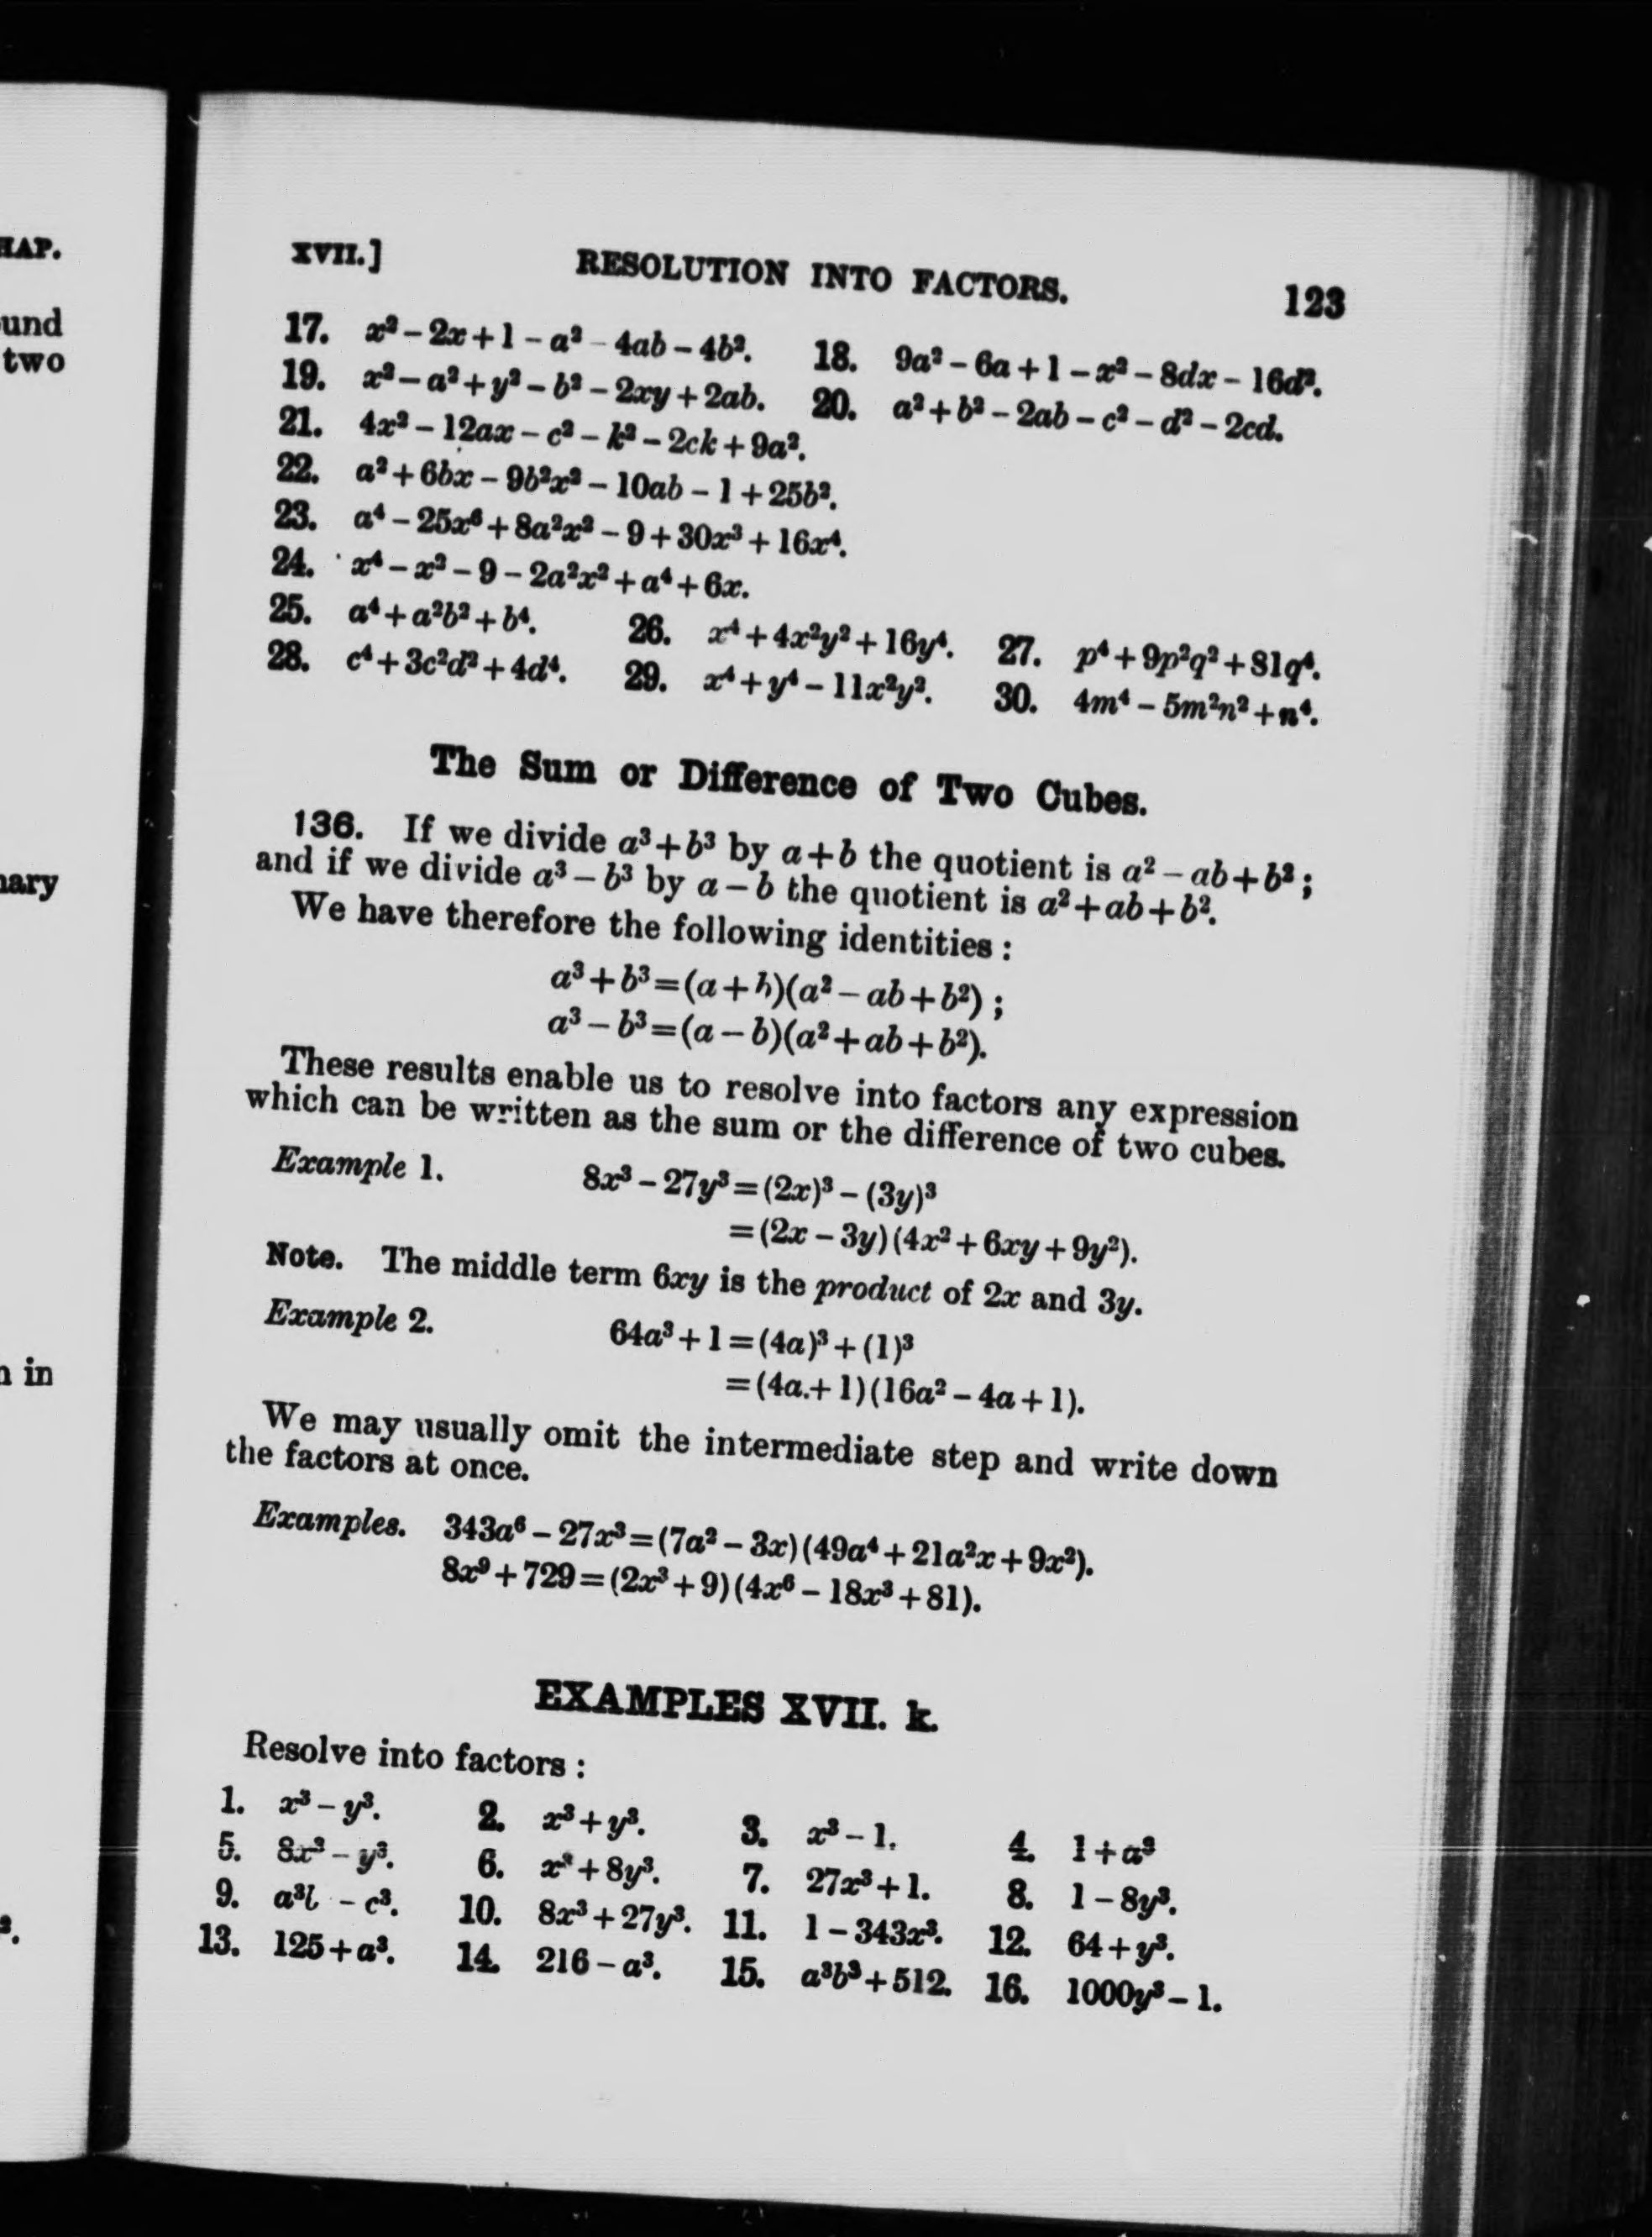 HAP.
und
two
nary
n in
XVII.] RESOLUTION INTO FACTORS. 123
17. x² − 2x + 1 − a² − 4ab − 4b². 18. 9a² − 6a + 1 − x² − 8dx − 16d².
19. x² − a² + y² − b² − 2xy + 2ab. 20. a² + b² − 2ab − c² − d² − 2cd.
21. 4x² − 12ax − c² − k² − 2ck + 9a².
22. a² + 6bx − 9b²x² − 10ab − 1 + 25b².
23. a⁴ − 25x⁶ + 8a²x² − 9 + 30x³ + 16x⁴.
24. x⁴ − x² − 9 − 2a²x² + a⁴ + 6x.
25. a⁴ + a²b² + b⁴. 26. x⁴ + 4x²y² + 16y⁴. 27. p⁴ + 9p²q² + 81q⁴.
28. c⁴ + 3c²d² + 4d⁴. 29. x⁴ + y⁴ − 11x²y². 30. 4m⁴ − 5m²n² + n⁴.
The Sum or Difference of Two Cubes.
136. If we divide a³ + b³ by a + b the quotient is a² − ab + b² ;
and if we divide a³ − b³ by a − b the quotient is a² + ab + b².
We have therefore the following identities :
a³ + b³ = (a + b)(a² − ab + b²) ;
a³ − b³ = (a − b)(a² + ab + b²).
These results enable us to resolve into factors any expression
which can be written as the sum or the difference of two cubes.
Example 1. 8x³ − 27y³ = (2x)³ − (3y)³
= (2x − 3y)(4x² + 6xy + 9y²).
Note. The middle term 6xy is the product of 2x and 3y.
Example 2. 64a³ + 1 = (4a)³ + (1)³
= (4a + 1)(16a² − 4a + 1).
We may usually omit the intermediate step and write down
the factors at once.
Examples. 343a⁶ − 27x³ = (7a² − 3x)(49a⁴ + 21a²x + 9x²).
8x⁹ + 729 = (2x³ + 9)(4x⁶ − 18x³ + 81).
EXAMPLES XVII. k.
Resolve into factors :
1. x³ − y³. 2. x³ + y³. 3. x³ − 1. 4. 1 + a³
5. 8x³ − y³. 6. x³ + 8y³. 7. 27x³ + 1. 8. 1 − 8y³.
9. − c³. 10. 8x³ + 27y³. 11. 1 − 343x³. 12. 64 + y³.
13. 125 + a³. 14. 216 − a³. 15. a³b³ + 512. 16. 1000y³ − 1.